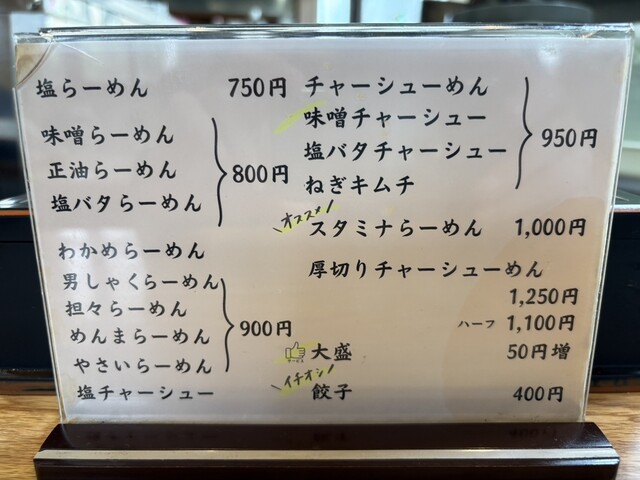 塩らーめん 750円
味噌らーめん
正油らーめん 800円
塩バタらーめん
わかめらーめん
男しゃくらーめん
担々らーめん
めんまらーめん 900円
やさいらーめん
塩チャーシュー
チャーシューめん
味噌チャーシュー
塩バタチャーシュー 950円
ねぎキムチ
オススメ!
スタミナらーめん 1,000円
厚切りチャーシューめん
1,250円
ハーフ 1,100円
大盛 50円増
イチオシ!
餃子 400円